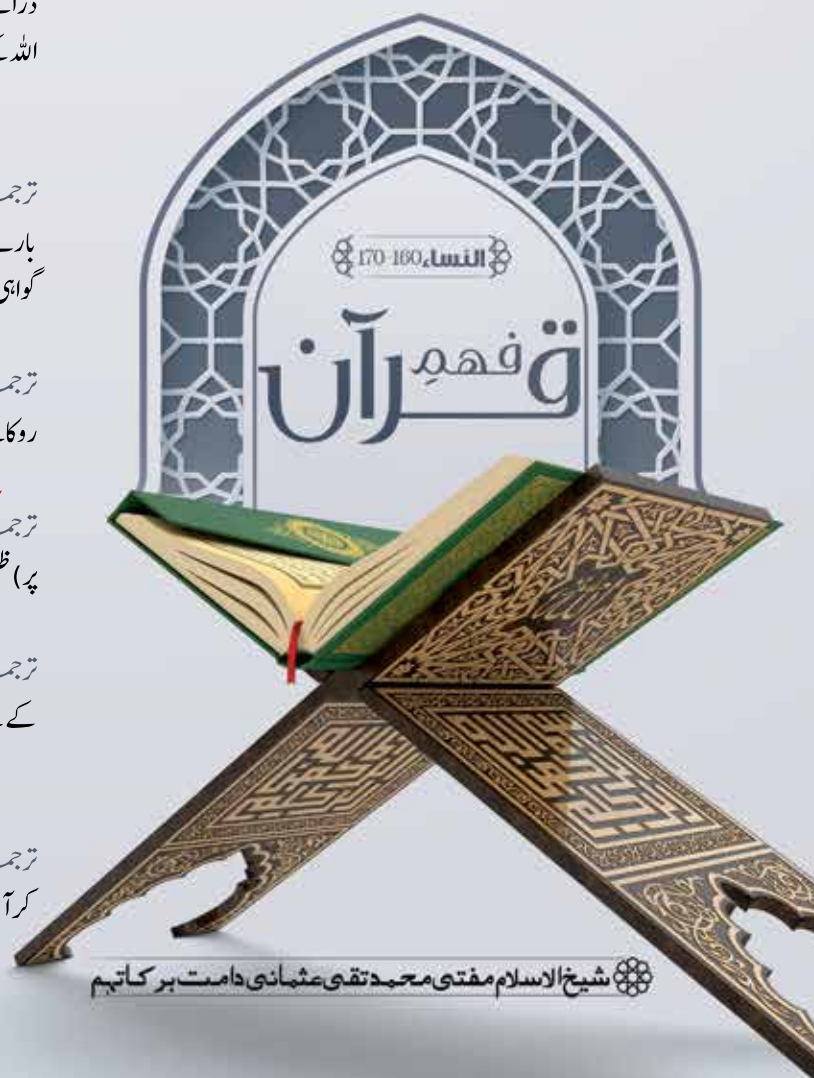 اللہ
ترجمہ
بارے
گواہی
ترجمہ
ترجمہ
پر) ظ
ترجمہ
کے
ترجمہ
کر آ
النساء 160-170
فہمِ قرآن
شیخ الاسلام مفتی محمد تقی عثمانی دامت برکاتہم